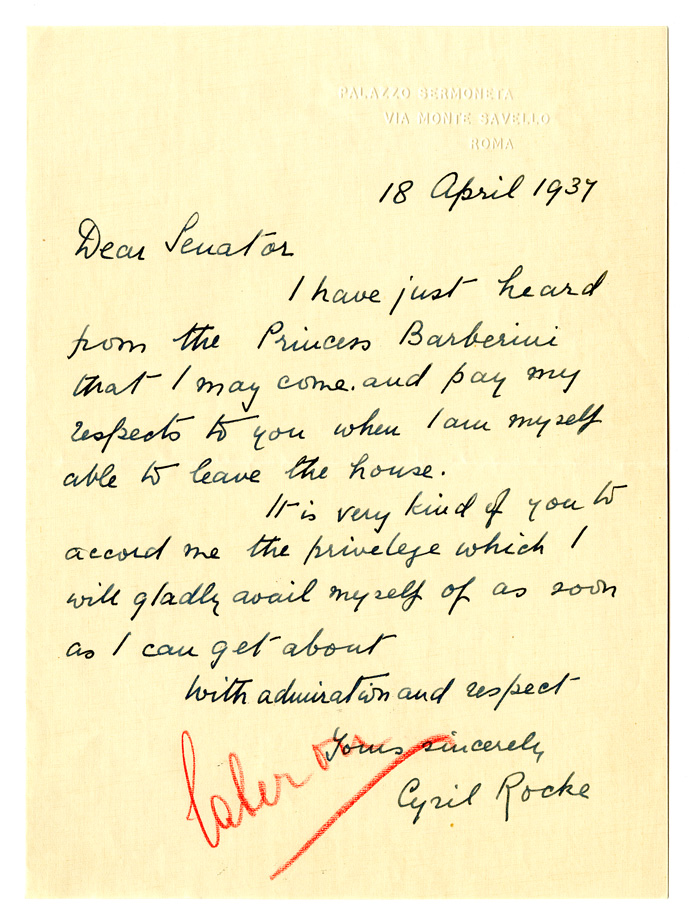 PALAZZO SERMONETA
VIA MONTE SAVELLO
ROMA
18 April 1937
Dear Senator
I have just heard
from the Princess Barberini
that I may come. and pay my
respects to you when I am myself
able to leave the house.
It is very kind of you to
accord me the privelege which I
will gladly avail myself of as soon
as I can get about
With admiration and respect
Yours sincerely
Cyril Rocke
later on